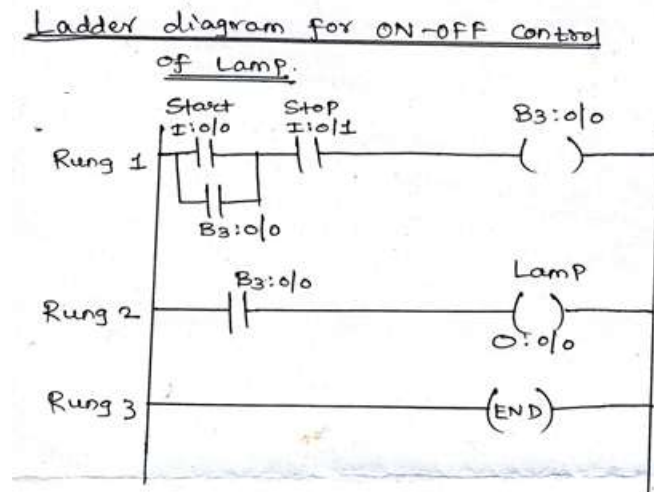 Ladder diagram for ON-OFF control
of Lamp.
Start
I:0/0
Stop
I:0/1
B3:0/0
Rung 1
B3:0/0
B3:0/0
Lamp
Rung 2
O:0/0
Rung 3
END